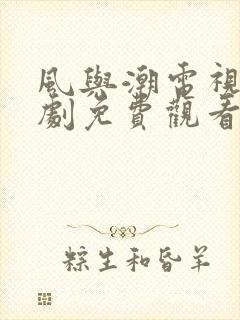 風與潮電視
劇免費觀看
粽生和昏羊